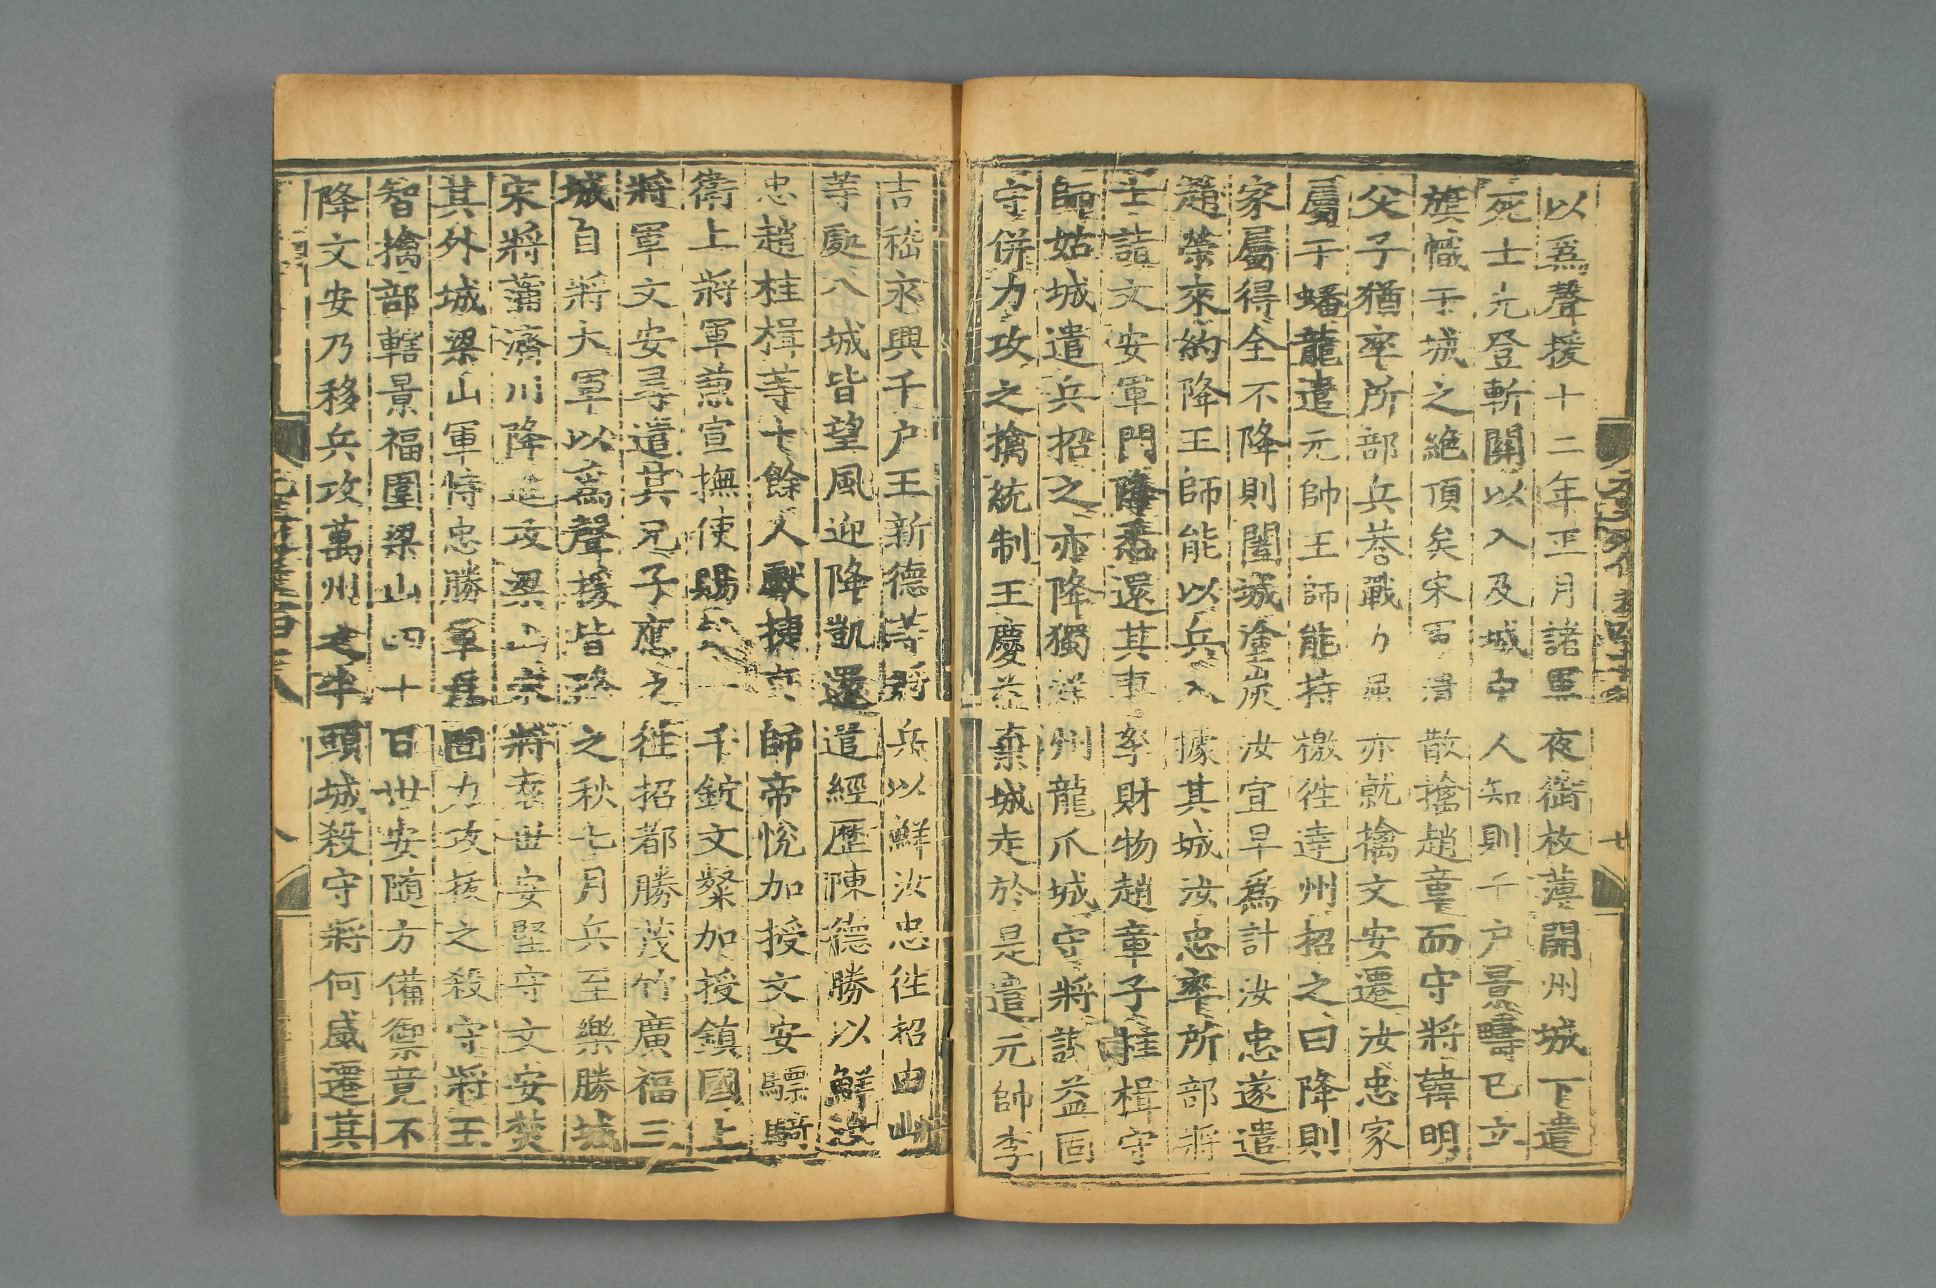 以爲聲援十二年正月諸軍夜銜枚薄開州城下遣
死士先登斬關以入及城中人知則千户景疇已立
旗幟于城之絶頂矣宋軍潰散擒趙章而守將韓明
父子猶率所部兵巷戰力屈亦就擒文安遷汝忠家
屬于蟠龍遣元帥王師能持檄徃達州招之曰降則
家屬得全不降則闔城塗炭汝宜早爲計汝忠遂遣
趙榮來約降王師能以兵入據其城汝忠率所部將
士詣文安軍門降悉還其妻孥財物趙章子桂楫守
師姑城遣兵招之亦降獨洋州龍爪城守將謝益固
守併力攻之擒統制王慶益棄城走於是遣元帥李
吉嵇永興千户王新德等將兵以鮮汝忠徃招由山
等處八城皆望風迎降凱還遣經歷陳德勝以鮮汝
忠趙桂楫等十餘人獻捷京師帝悅加授文安驃騎
衛上將軍兼宣撫使賜鈔一千錠文粲加授鎮國上
將軍文安尋遣其兄子應之徃招都勝茂竹廣福三
城自將大軍以爲聲援皆降之秋七月兵至樂勝城
宋將蒲濟川降進攻梁山宋將袁世安堅守文安焚
其外城梁山軍恃忠勝軍爲固力攻拔之殺守將王
智擒部轄景福圍梁山四十日世安隨方備禦竟不
降文安乃移兵攻萬州之牛頭城殺守將何威遷其